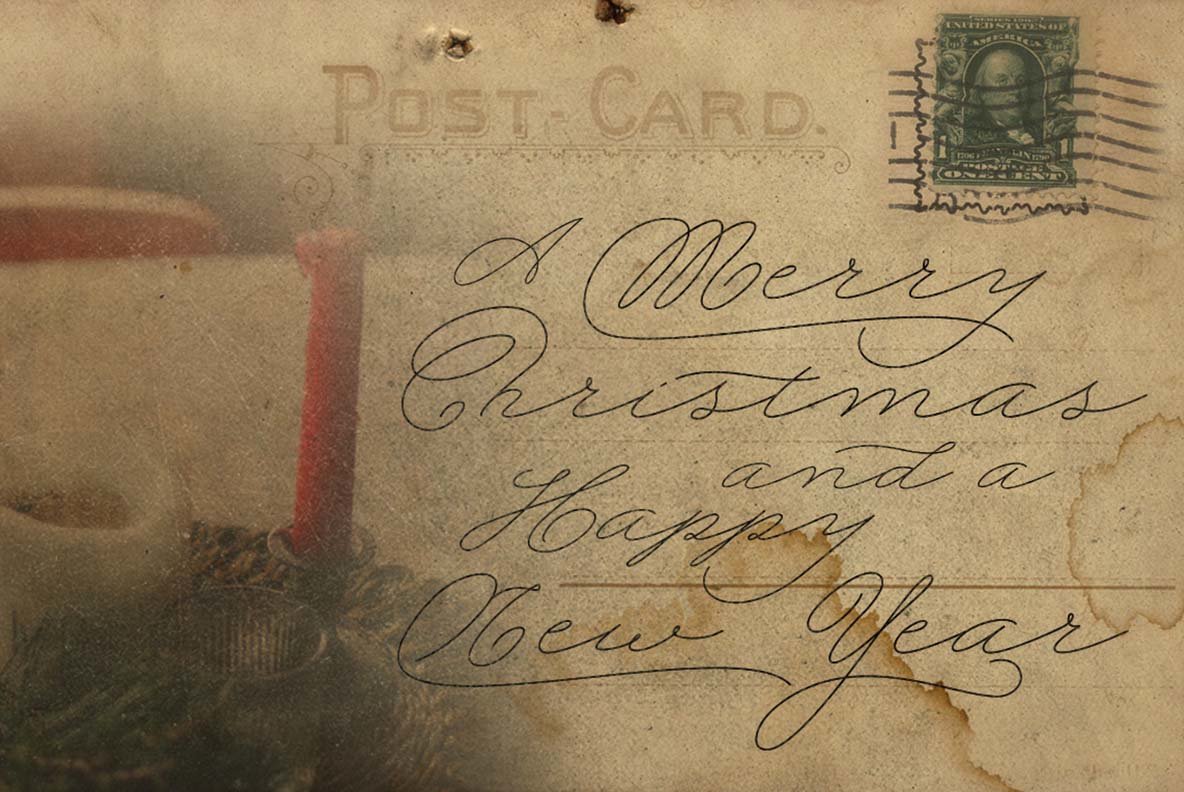 POST-CARD.
SERIES 1902
UNITED STATES OF
AMERICA
1 1
1706 FRANKLIN 1790
POSTAGE
ONE CENT
A Merry
Christmas
and a
Happy
New Year